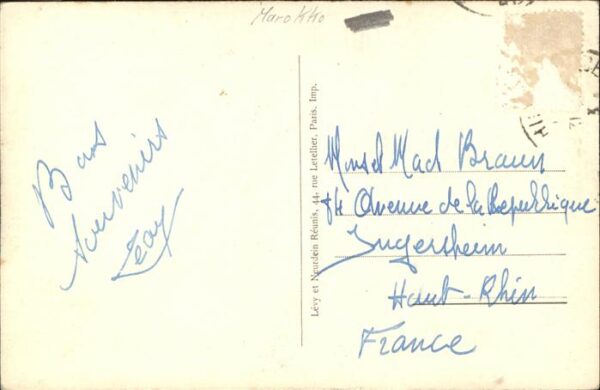 Marokko
Bons
souvenirs
Lévy et Neurdein Réunis, 44, rue Letellier, Paris. Imp.
Monsieur Mad Braun
84 Avenue de la République
Ingersheim
Haut-Rhin
France